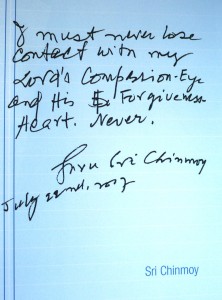 I must never lose
contact with my
Lord's Compassion-Eye
and His Forgiveness-
Heart. Never.
Sri Chinmoy
July 22nd, 2007
Sri Chinmoy